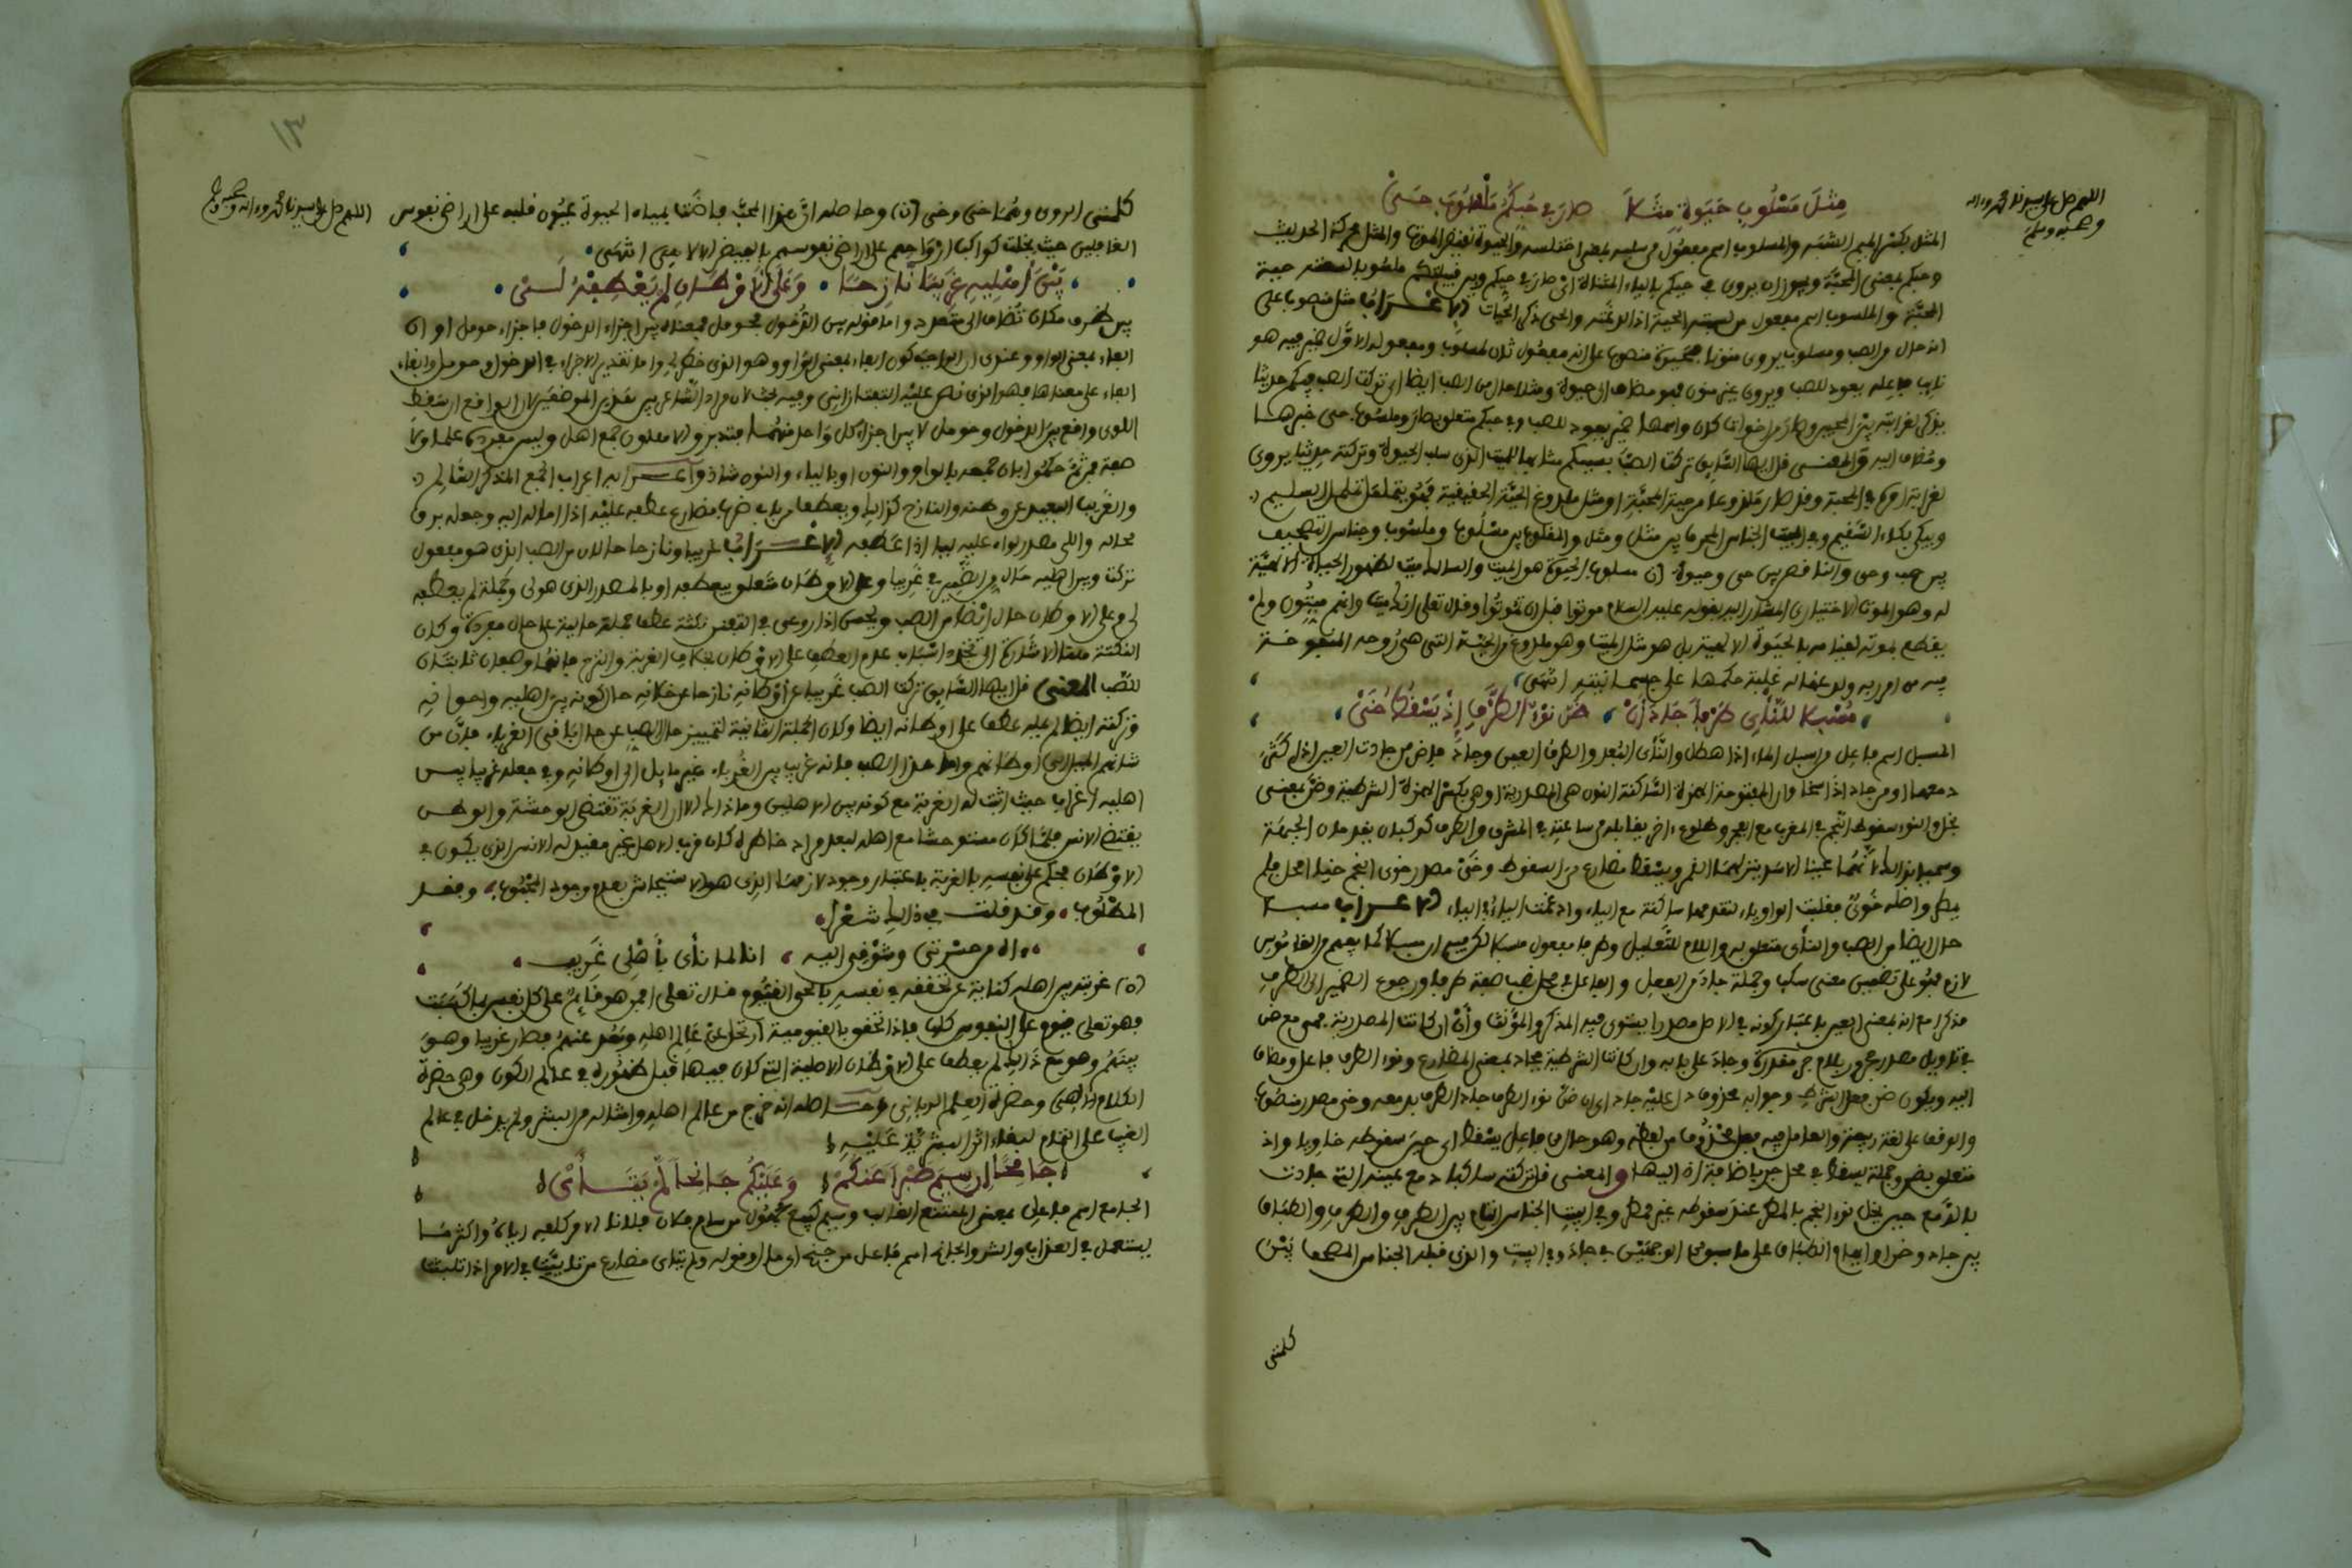 اللهم صل على سيدنا محمد وءاله
وصحبه وسلم
مِثْلَ مَسْلُوبِ حَيَوةٍ مَثَلاَ صَارَ فِي حُبِّكُمُ مَلْسُوبَ حَيّْ
المثل بكسر الميم الشبه والمسلوب اسم مفعول من سلبه بمعنى اختلسه والحيوة نقيض الموت والمثل محركة الحديث
وحبكم بمعنى المحبة ويجوز ان يروى في حيكم بالياء المثناة اي صار في حيكم وبين قبيلتكم ملسوبا لسعته حية
المحبة والملسوب اسم مفعول من لسبته الحية اذا لدغته والحي ذكر الحيات الاعراب مثل منصوبا على
انه حال من الصب ومسلوب يروى منونا فحيوة منصوب على انه مفعول ثان لمسلوب ومفعوله الاول ضمير فيه هو
نايب فاعله يعود للصب ويروى غير منون فهو مضاف الى حيوة ومثلا حال من الصب ايضا اي تركت الصب فيكم حديثا
يذكر لغرابته بين المحبين وصار من اخوات كان واسمها ضمير يعود للصب وفي حبكم متعلق بصار وملسوب حي خبرها
ومضاف اليه والمعنى قل ايها السايق تركت الصب بحبكم مثل الميت الذي سلب الحيوة وتركته حديثا يروى
لغرابة امره في المحبة وقد صار ملدوغا من حية المحبة او مثل ملدوغ الحية الحقيقية فهو يتململ تململ السليم
ويبكي بكاء السقيم وفي البيت الجناس المحرف بين مثل ومثل والمقلوب بين مسلوب وملسوب وجناس التصحيف
بين حب وحي والناقص بين حي وحيوة (ن) مسلوب الحيوة هو الميت والسالك ميت لظهور الحياة الالهية
له وهو الموت الاختياري المشار اليه بقوله عليه السلام موتوا قبل ان تموتوا وقال تعالى انك ميت وانهم ميتون ولم
يقطع بموته لقيامه بالحيوة الالهية بل هو مثل الميت وهو ملدوغ من الحية التي هي روحه المنفوخة
فيه من امر ربه ولدغها له غلبة حكمها على جسمانيته انتهى
مُسْبِلا لِلنَّأْيِ طَرْفاً جَادَ إِنْ ضَنَّ نَوْءُ الطَّرْفِ إِذْ يَسْقُطُ خَيّْ
المسبل اسم فاعل من اسبل الماء اذا هطل والنأى البعد والطرف العين وجاد ماض من جادت العين اذا كثر
دمعها او من جاد اذا سخا وان المفتوحة الهمزة الساكنة النون هي المصدرية او هي بكسر الهمزة الشرطية وضن بمعنى
بخل والنوء سقوط النجم في المغرب مع الفجر وطلوع اخر يقابله من ساعته في المشرق والطرف كوكبان يقدمان الجبهة
وسميا بذلك لانهما عينا الاسد ينزلهما القمر ويسقط مضارع من السقوط وخي مصدر خوى النجم خيا امحل فلم
يمطر واصله خوي فقلبت الواو ياء لتقدمها ساكنة مع الياء وادغمت الياء في الياء الاعراب مسبلا
حال ايضا من الصب والنأى متعلق به واللام للتعليل وطرفا مفعول مسبلا لكن فيه ان مسبلا كما يفهم من القاموس
لازم فهو على تضمين معنى سكب وجملة جاد من الفعل والفاعل في محل نصب صفة طرفا ورجوع الضمير الى الطرف
مذكرا مع انه بمعنى العين باعتبار كونه في الاصل مصدرا يستوى فيه المذكر والمؤنث وأن ان كانت المصدرية فهي مع ضن
في تاويل مصدر مجرور بلام جر مقدرة وجاد على بابه وان كانت الشرطية فجاد بمعنى المضارع ونوء الطرف فاعل ومضاف
اليه ويكون ضن فعل الشرط وجوابه محذوف دل عليه جاد اي ان ضن نوء الطرف جاد الطرف بدمعه وخي مصدر منصوب
والوقف على لغة ربيعة والعامل فيه فعل محذوف من لفظه وهو حال من فاعل يسقط اى حين سقوطه خاويا واذ
متعلق بضن وجملة يسقط في محل جر باضافة اذ اليها والمعنى قل تركته ساكبا دمع عينه التي جادت
بالدمع حين بخل نوء النجم بالمطر عند سقوطه غير ممطر وفي البيت الجناس التام بين الطرف والطرف والطباق
بين جاد وضن او ايهام الطباق على ما سبق من الوجهين في جاد وفي البيت والذى قبله الجناس المصحف بَيْنَ
كلمتى

١٣
اللهم صل على سيدنا محمد وءاله وصحبه وسلم
كلمتى الروى وهما حى وخى (ن) وحاصله ان هذا المحب فاضت بمياه الحيوة عيون قلبه على اراضى نفوس
الغافلين حيث بخلت كواكب ارواحهم على اراضى نفوسهم بالفيض الالاهى انتهى
بَيْنَ أَهْلِيهِ غَرِيبًا نَازِحًا وَعَلَى الاَوْطَانِ لَمْ يَعْطِفْهُ لَيّْ
بين ظرف مكان تضاف الى متعدد واما قوله بين الدخول فحومل فمعناه بين اجزاء الدخول فاجزاء حومل او ان
الفاء بمعنى الواو وعندى ان الراجح كون الفاء بمعنى الواو وهو الذى خطر لي واما تقدير الاجزاء في الدخول وحومل وابقاء
الفاء على معناها فهو الذى نص عليه التفتازانى وفيه بحث لان مراد الشاعر بين هذين الموضعين لان الواقع ان سقط
اللوى واقع بين الدخول وحومل لا بين اجزاء كل واحد منهما فتدبر والاهلون جمع اهل وليس مفرده علما ولا
صفة فمن ثم حكموا بان جمعه بالواو والنون او بالياء والنون شاذ واعرابه اعراب الجمع المذكر السالم
والغريب البعيد عن وطنه والنازح كذلك ويعطف من باب ضرب مضارع عطفه عليه اذا اماله اليه وجعله يرق
لحاله واللي مصدر لواه عليه ليا اذا عطفه الاعراب غريبا ونازحا حالان من الصب الذى هو مفعول
تركت وبين اهليه حال من الضمير في غريبا وعلى الاوطان متعلق بيعطفه او بالمصدر الذى هو لى وجملة لم يعطفه
لى وعلى الاوطان حال ايضا من الصب ويحسن اذا روعى في التفنن نكتة عطف جملة حالية على حال مفردة وكان
النكتة هنا الاشارة الى تجدد اسباب عدم العطف على الاوطان بخلاف الغربة والنزوح فانهما وصفان ثابتان
للصب المعنى قل ايها السايق تركت الصب غريبا عن اوطانه نازحا عن خلانه حال كونه بين اهليه واخوانه
وتركته ايضا لم يمله عطف على اوطانه ايضا وكان الجملة الثانية لتمييز حال الصب عن حال باقى الغرباء فان من
شانهم الميل الى اوطانهم واما هذا الصب فانه غريب بين الغرباء غير مايل الى اوطانه وفي جعله غريبا بين
اهليه اغراب حيث اثبت له الغربة مع كونه بين الاهلين وما ذاك الا لان الغربة تقتضى الوحشة والوطن
يقتضى الانس فلما كان مستوحشا مع اهله لبعد مراد خاطره كان قرب الاهل غير مفيد له الانس الذى يكون في
الاوطان فحكم على نفسه بالغربة باعتبار وجود لازمها الذى هو الاستيحاش بعدم وجود المحبوب وفقد
المطلوب وقد قلت في ذلك شعرا
ءاه من حسرتى وشوقى اليه انا لما نأى بأَهْلِى غَرِيب
(ن) غربته بين اهله كناية عن تحققه في نفسه بالحى القيوم قال تعالى افمن هو قائم على كل نفس بما كسبت
فهو تعلى قيوم على النفوس كلها فاذا تحقق بالقيومية ارتحل عن عالم اهله وبعد عنهم فصار غريبا وهو
بينهم وهو مع ذلك لم يعطف على الاوطان الاصلية التى كان فيها قبل ظهوره في عالم الكون وهى حضرة
الكلام الالهى وحضرة العلم الربانى وحاصله انه خرج من عالم اهله وامثاله من البشر ولم يدخل في عالم
الغيب على التمام لبقاء اثر البشرية عَلَيْهِ
جَامِحًا إِنْ سِيمَ صَبْراً عَنْكُمُ وَعَلَيْكُمْ جَانِحاً لَمْ يَتَأَيّْ
الجامح اسم فاعل بمعنى الممتنع الهارب وسيم كبيع مجهول من سام فلان فلانا الامر كلفه اياه واكثر ما
يستعمل في العذاب والشر والجانح اسم فاعل من جنح اى مال وقوله ولم يتاى مضارع من تاييت في الامر اذا تلبثت